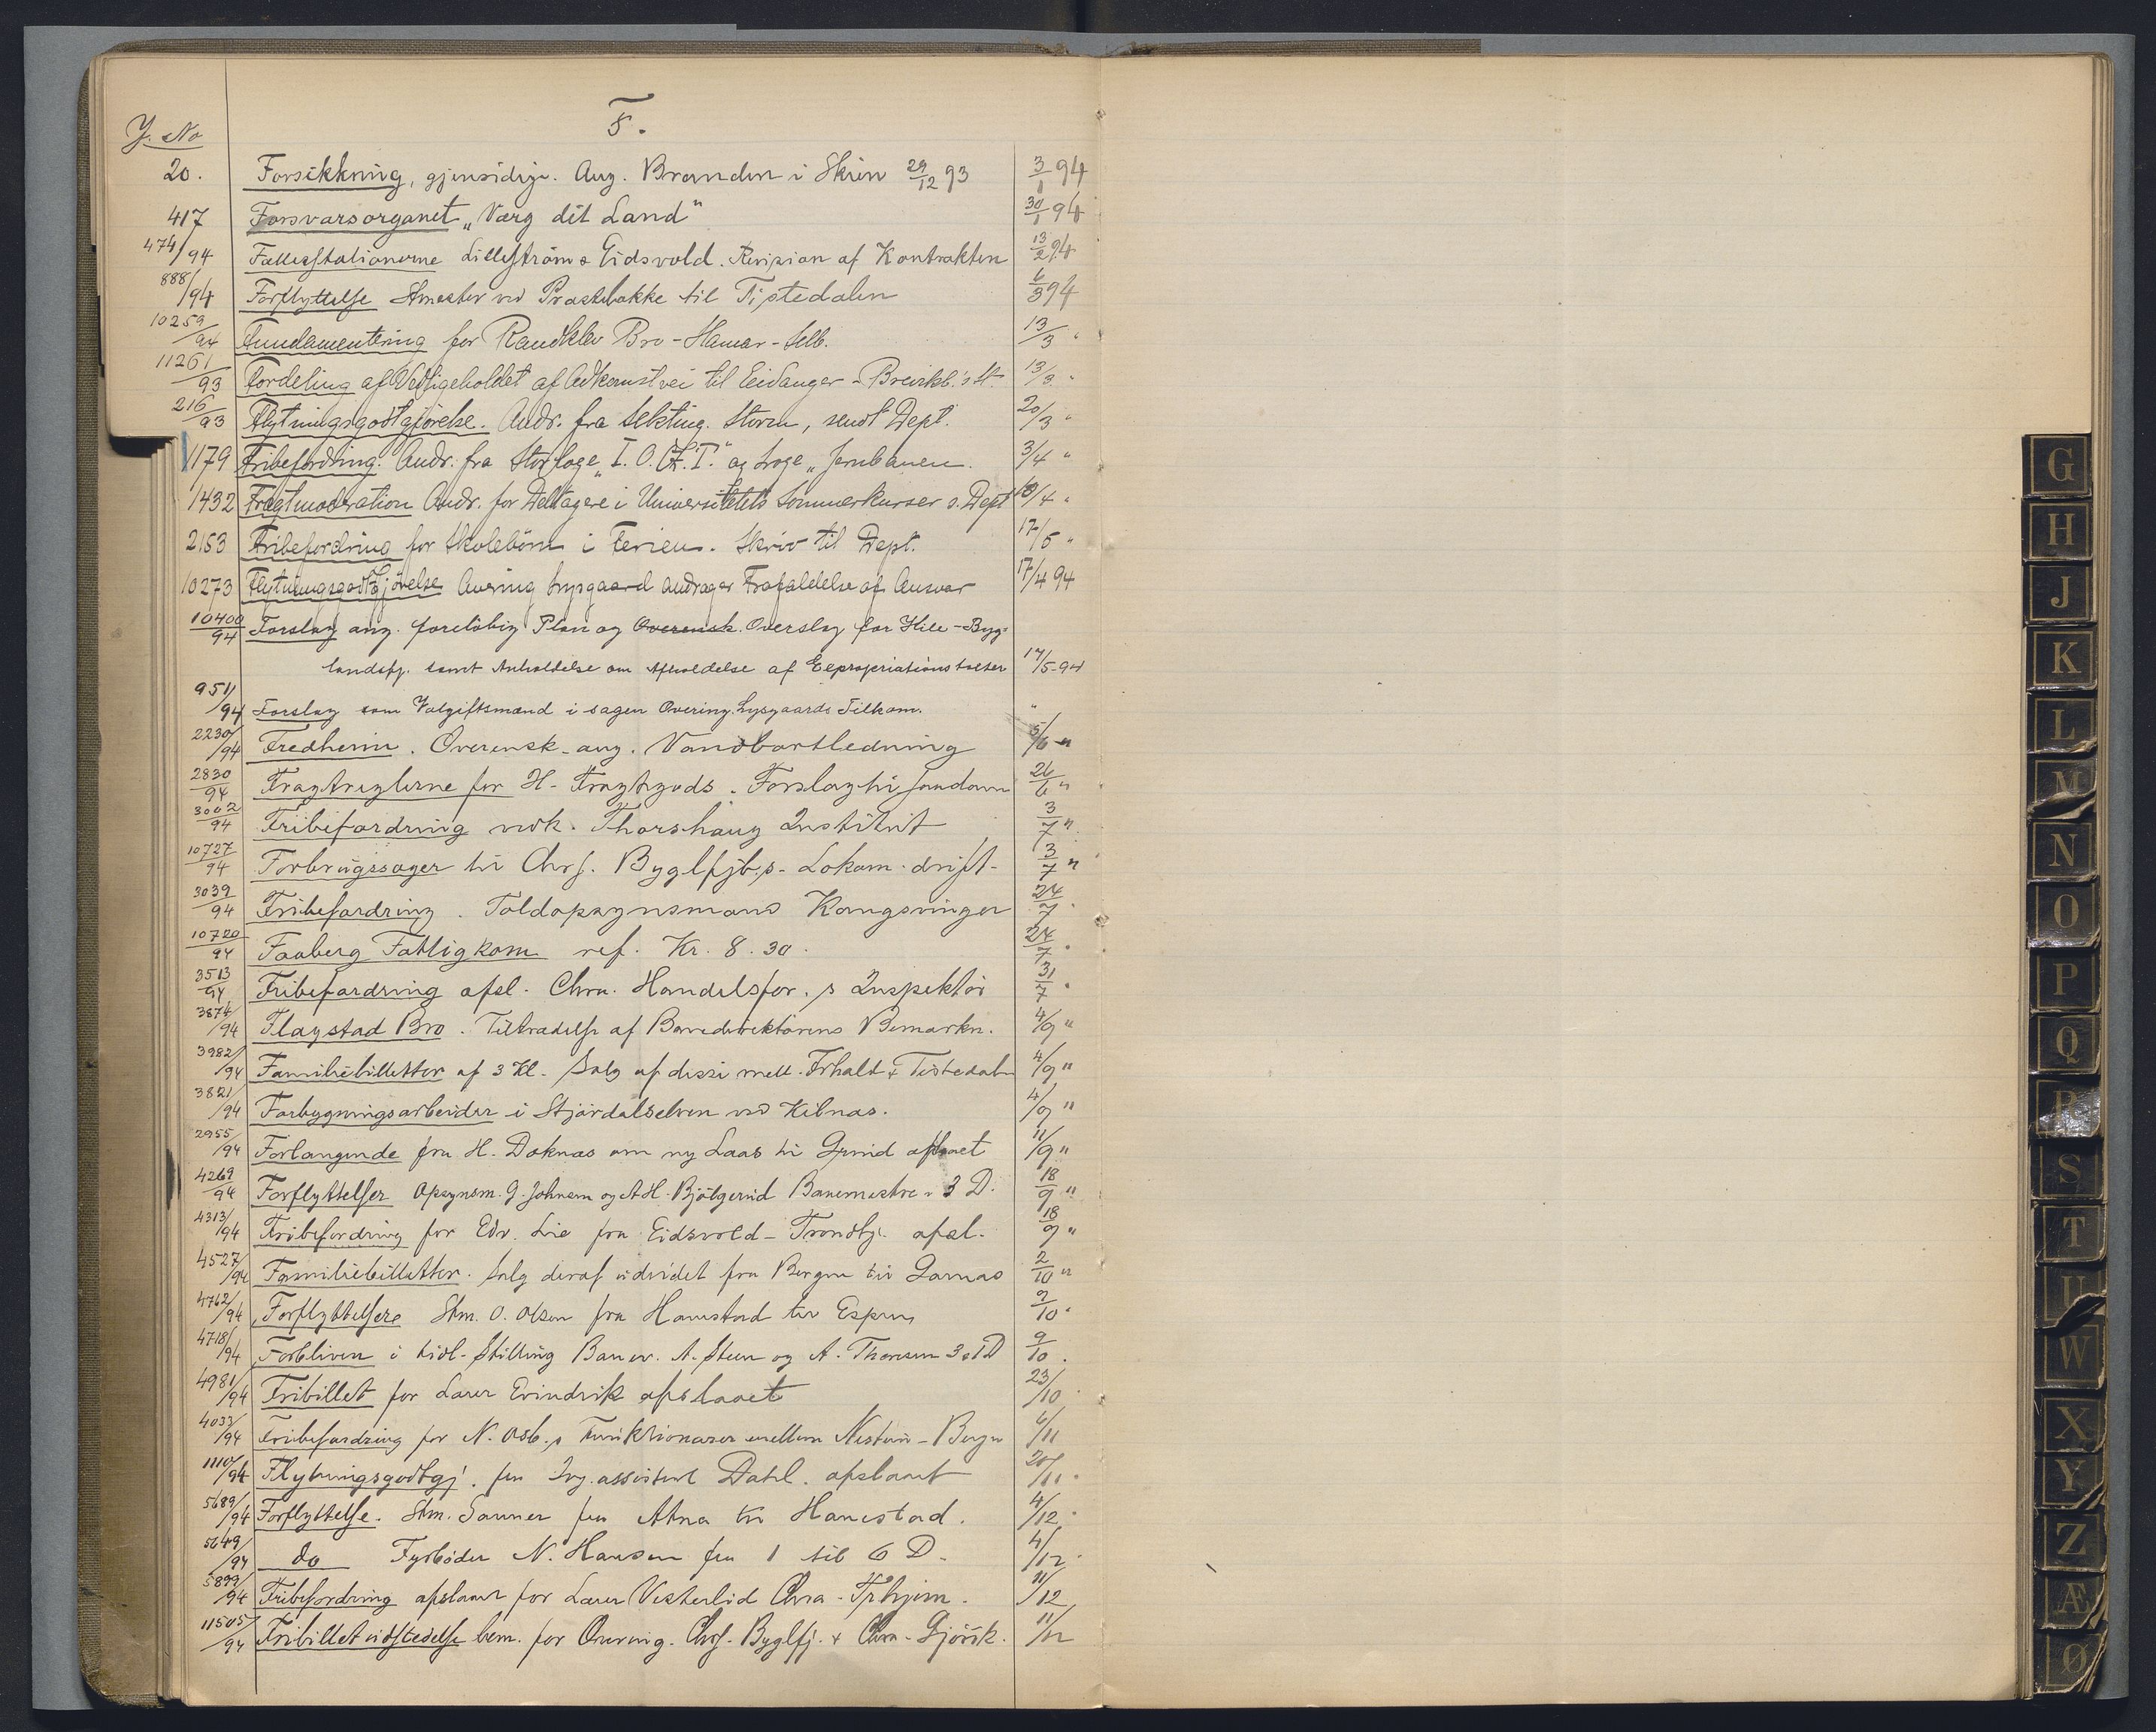 F.
J. No
20. Forsikkring, gjensidige. Ang. Branden i Skien 29/12 93 3/1 94
417 Forsvarsorganet „Værg dit Land" 30/1 94
474/94 Fællesstationerne Lillestrøm & Eidsvold. Revision af Kontrakten 13/2 94
888/94 Forflyttelse Stmester ved Præstebakke til Tistedalen 6/3 94
10259/94 Fundamentering for Randklev Bro - Hamar - Selb. 13/3 "
11261/93 Fordeling af Vedligeholdet af Adkomstvei til Eidanger - Brevikb.'s St. 13/3 "
216/93 Flytningsgodtgjörelse. Andr. fra Sekting. Storm, sendt Dept. 20/3 "
1179 Fribefordring. Andr. fra Storloge „I. O. G. T." og Loge „Jernbanen. 3/4 "
1432 Fragtmoderation Andr. for Deltagere i Universitetets Sommerkurser s. Dept 10/4 "
2153 Fribefordring for Skolebörn i Ferien. Skriv til Dept. 17/5 "
10273 Flytningsgodtgjörelse Overing Lysgaard andrager Frafaldelse af Ansvar 17/4 94
10400/94 Forslag ang. foreløbig Plan og Overensk. Overslag for Hile - Byg-
landsfj. samt Anholdelse om Afholdelse af Expropriationstakster 17/5-94
951/94 Forslag som Valgiftsmænd i sagen Overing. Lysgaards Tilkom. "
2230/94 Fredheim. Overensk. ang. Vandbortledning 5/6 "
2830/94 Fragtreglerne for H- Fragtgods. Forslag til 26/6 "
3002/94 Fribefordring vedk. Thorshaug Institut 3/7 "
10727/94 Forbrugssager til Chrs. Byglfjb.s. Lokom. drift - 3/7 "
3039/94 Fribefordring. Toldopsynsmand Kongsvinger 24/7 "
10720/94 Faaberg Fattigkom. ref. Kr. 8.30. 24/7 "
3513/94 Fribefordring afsl. Chra. Handelsfor.s Inspektör 31/7 "
3874/94 Flagstad Bro. Tiltrædelse af Banedirektörens Bemærkn. 4/9 "
3982/94 Familiebilletter af 3 Kl. Salg af disse mell. Frhald & Tistedalen 4/9 "
3821/94 Forbygningsarbeider i Stjördalselven ved Kilnæs. 4/9 "
2955/94 Forlangende fra H. Doknæs om ny Laas til Grind afslaaet 11/9 "
4269/94 Forflyttelser Opsynsm. G. Johnsen og A H. Bjölgerud Banemestre i 3 D. 18/9 "
4313/94 Fribefordring for Edv. Lie fra Eidsvold - Trondhj. afsl. 18/9 "
4527/94 Familiebilletter. Salg deraf udvidet fra Bergen til Garnæs 2/10 "
4762/94 Forflyttelser Stm. O. Olsen fra Hanestad til Espen 9/10 "
4718/94 Forbliven i tidl. Stilling Banev. A. Steen og A. Thoresen 3. D 9/10 "
4981/94 Fribillet for Lærer Evindvik afslaaet 23/10 "
4033/94 Fribefordring for N. Osb.s Funktionærer mellem Nestun - Bergen 6/11
1110/94 Flytningsgodtgj. for Ing. assistent Dahl. afslaaet 20/11 "
5689/94 Forflyttelse. Stm. Sanner fra Atna til Hanestad. 4/12 "
5649/94 do Fyrböder N. Hansen fra 1 til 6 D. 4/12 "
5899/94 Fribefordring afslaaet for Lærer Vesterlid Chra - Trhjem. 11/12
11505/94 Fribilletudstedelse bem. for Overing. Chrs. Byglfj. & Chra - Gjövik. 11/12
G
H
J
K
L
M
N
O
P
Q
R
S
T
U
W
X
Y
Z
Æ
Ø